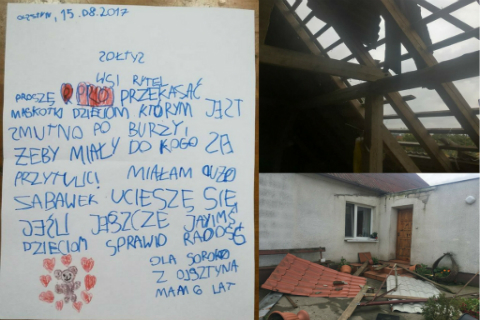 OLSZTYN, 15.08.2017
SOŁTYS
WSI RYTEL
PROSZĘ PRZEKAZAĆ
MASKOTKI DZIECIOM KTÓRYM JEST
SMUTNO PO BURZY,
ŻEBY MIAŁY DO KOGO SIĘ
PRZYTULIĆ! MIAŁAM DUŻO
ZABAWEK UCIESZĘ SIĘ
JEŚLI JESZCZE JAKIMŚ
DZIECIOM SPRAWIĄ RADOŚĆ
OLA
Z OLSZTYNA
MAM 6 LAT